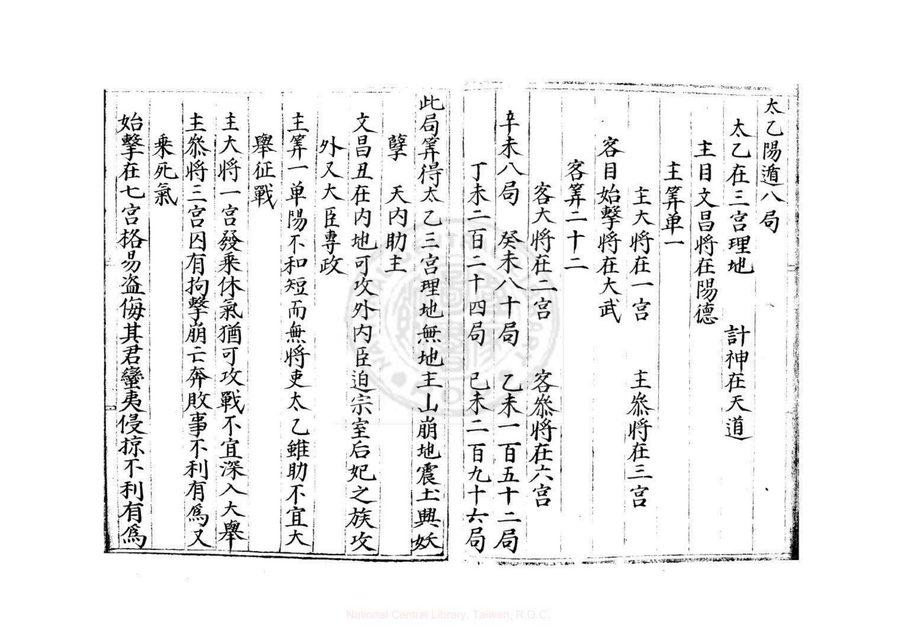 太乙陽遁八局
太乙在三宮理地　計神在天道
主目文昌將在陽德
主筭單一
主大將在一宮　主叅將在三宮
客目始擊將在大武
客筭二十二
客大將在二宮　客叅將在六宮
辛未八局　癸未八十局　乙未一百五十二局
丁未二百二十四局　己未二百九十六局
此局筭得太乙三宮理地無地主山崩地震土興妖
孽　天內助主
文昌丑在內地可攻外內臣迫宗室后妃之族攻
外又大臣專政
主筭一单陽不和短而無將吏太乙雖助不宜大
舉征戰
主大將一宮發乘休氣猶可攻戰不宜深入大舉
主叅將三宮囚有拘擊崩亡奔敗事不利有爲又
乘死氣
始擊在七宮格易盗侮其君蠻夷侵掠不利有爲
National Central Library, Taiwan, R.O.C.